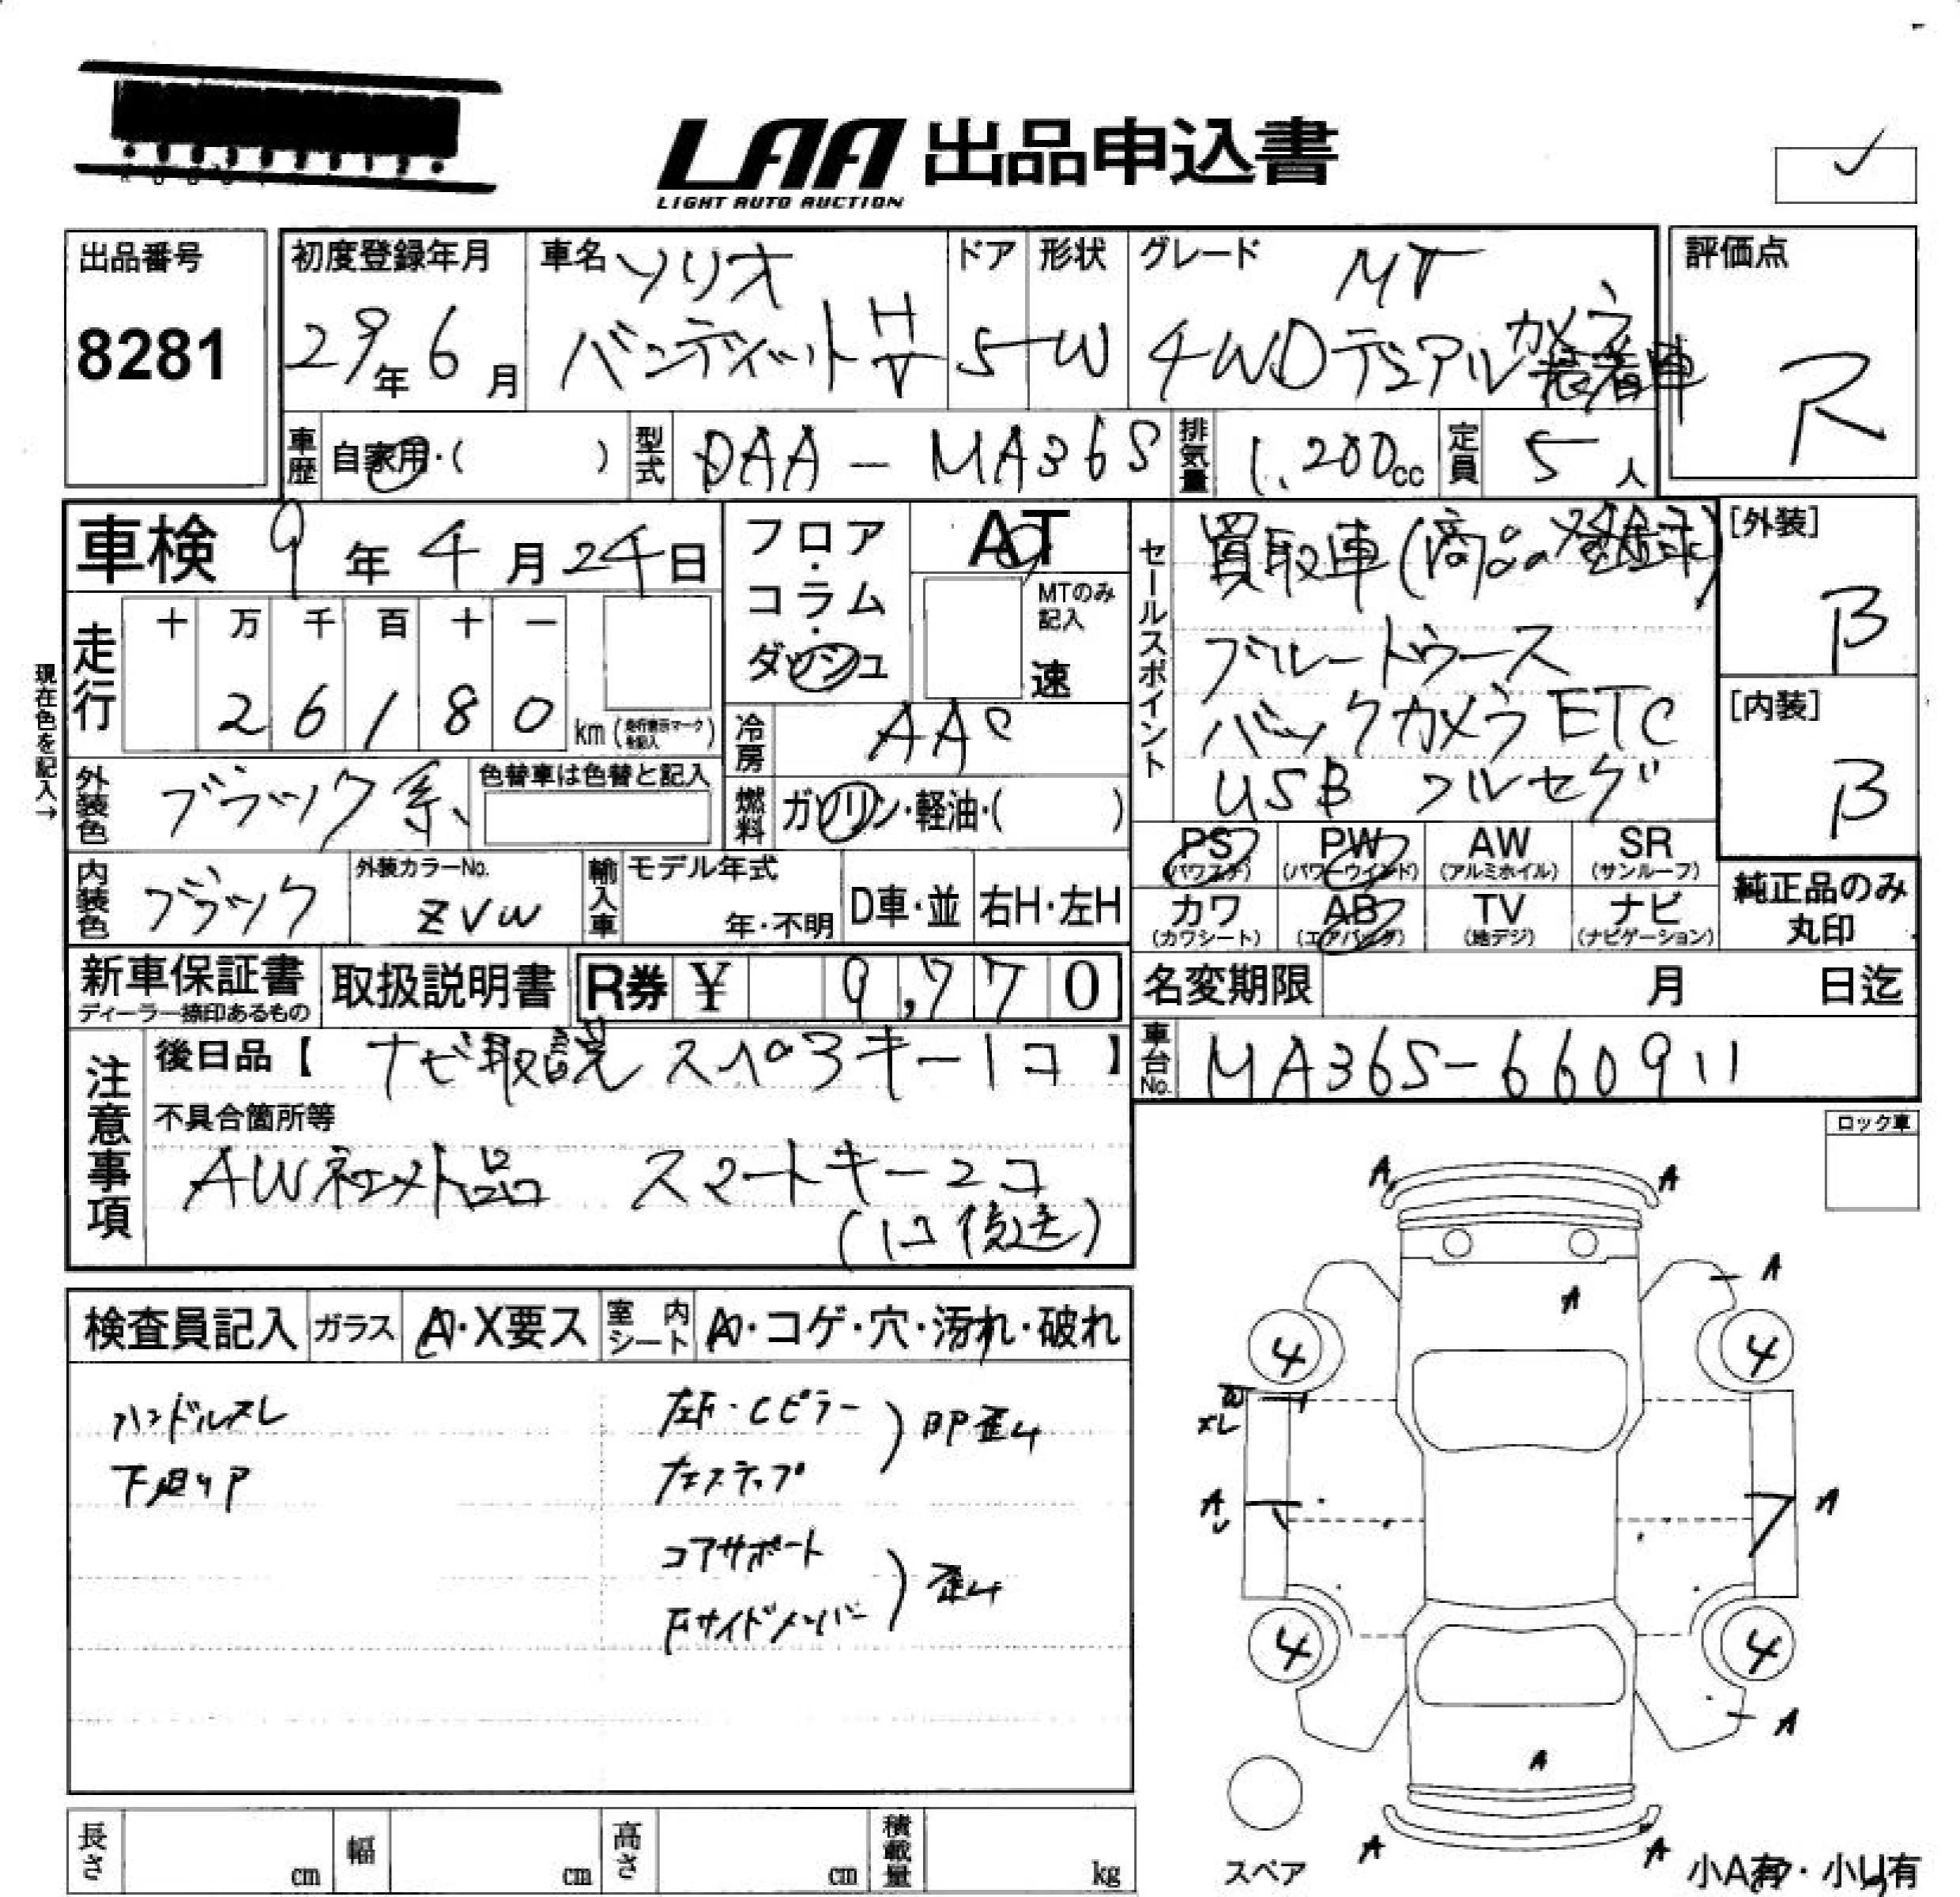 LAA 出品申込書
LIGHT AUTO AUCTION
出品番号
8281
初度登録年月
29年6月
車名 ソリオ
バンディット HV
ドア
5
形状
W
グレード MV
4WDデュアルカメラ装着車
評価点
R
車歴 自家用・( )
型式 DAA-MA36S
排気量 1,200cc
定員 5人
車検 9年4月24日
フロア・コラム・ダッシュ
AT
MTのみ記入
速
セールスポイント
買取車(商品の登録)
ブルートゥース
バックカメラ ETC
USB フルセグ
[外装]
B
[内装]
B
現在色を記入→
走行
十 万 千 百 十 一
2 6 1 8 0 km(走行表示マークを記入)
冷房 AAC
外装色 ブラック系
色替車は色替と記入
燃料 ガソリン・軽油・( )
PS (パワステ) PW (パワーウインド) AW (アルミホイル) SR (サンルーフ)
カワ (カワシート) AB (エアバッグ) TV (地デジ) ナビ (ナビゲーション)
純正品のみ
丸印
内装色 ブラック
外装カラーNo.
ZVW
輸入車
モデル年式
年・不明
D車・並
右H・左H
新車保証書
ディーラー捺印あるもの
取扱説明書
R券 ¥ 9,770
名変期限 月 日迄
車台No. MA36S-660911
注意事項
後日品【 ナビ取説 スペアキー1コ 】
不具合箇所等
AW社外品 スマートキー2コ
(1コ後送)
ロック車
検査員記入
ガラス A・X要ス
室内シート A・コゲ・穴・汚れ・破れ
ハンドルスレ
下廻りP
左F・Cピラー
左ステップ
BP歪み
コアサポート
Fサイドメンバー
歪み
A A
A
A
4 4
W
ズレ
A
U
A
4 4
A
A
A A
スペア
小A有・小U有
長さ cm
幅 cm
高さ cm
積載量 kg